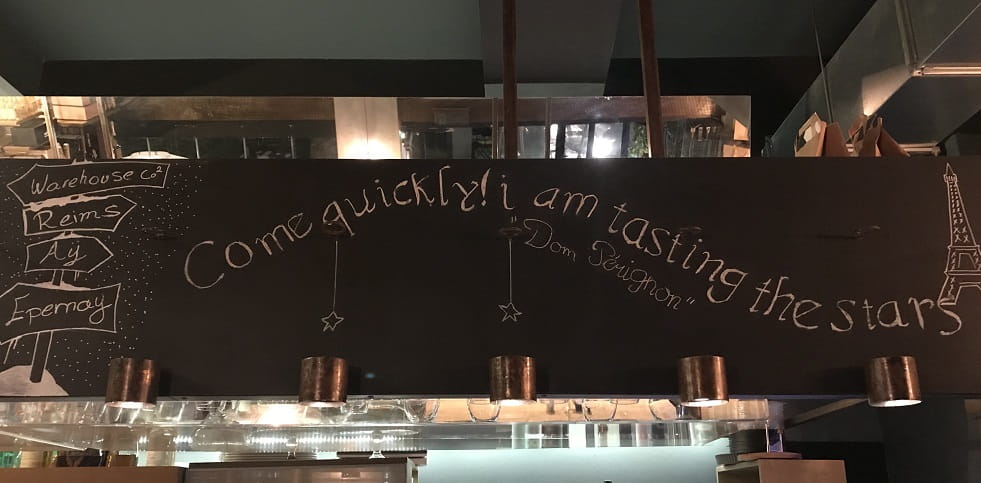 Warehouse Co²
Reims
Aÿ
Epernay
Come quickly! i am tasting the stars
"Dom Pérignon"